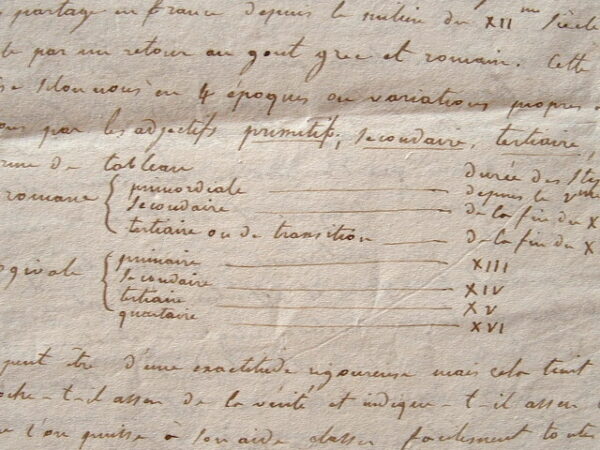 partage en france depuis le milieu du XIIme siècle
par un retour au gout grec et romain. Cette
selon nous en 4 époques ou variations propres
par les adjectifs primitif, secondaire, tertiaire,
de tableau
durée des
romane { primordiale depuis le
secondaire de la fin du X
tertiaire ou de transition de la fin du X
ogivale { primaire XIII
secondaire XIV
tertiaire XV
quartaire XVI
peut être d'une exactitude rigoureuse mais cela tient
t-il assez de la vérité et indique-t-il assez
l'on puisse à son aide classer facilement toutes